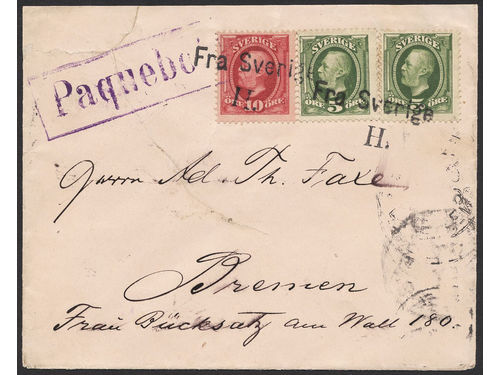 Paquebo
SVERIGE SVERIGE SVERIGE
Fra Sverige
Fra Sverige
ÖRE 10 ÖRE ÖRE 5 ÖRE
H.
H.
Herrn Ad. Th. Faxe
Bremen
Frau Bücksatz am Wall 180.